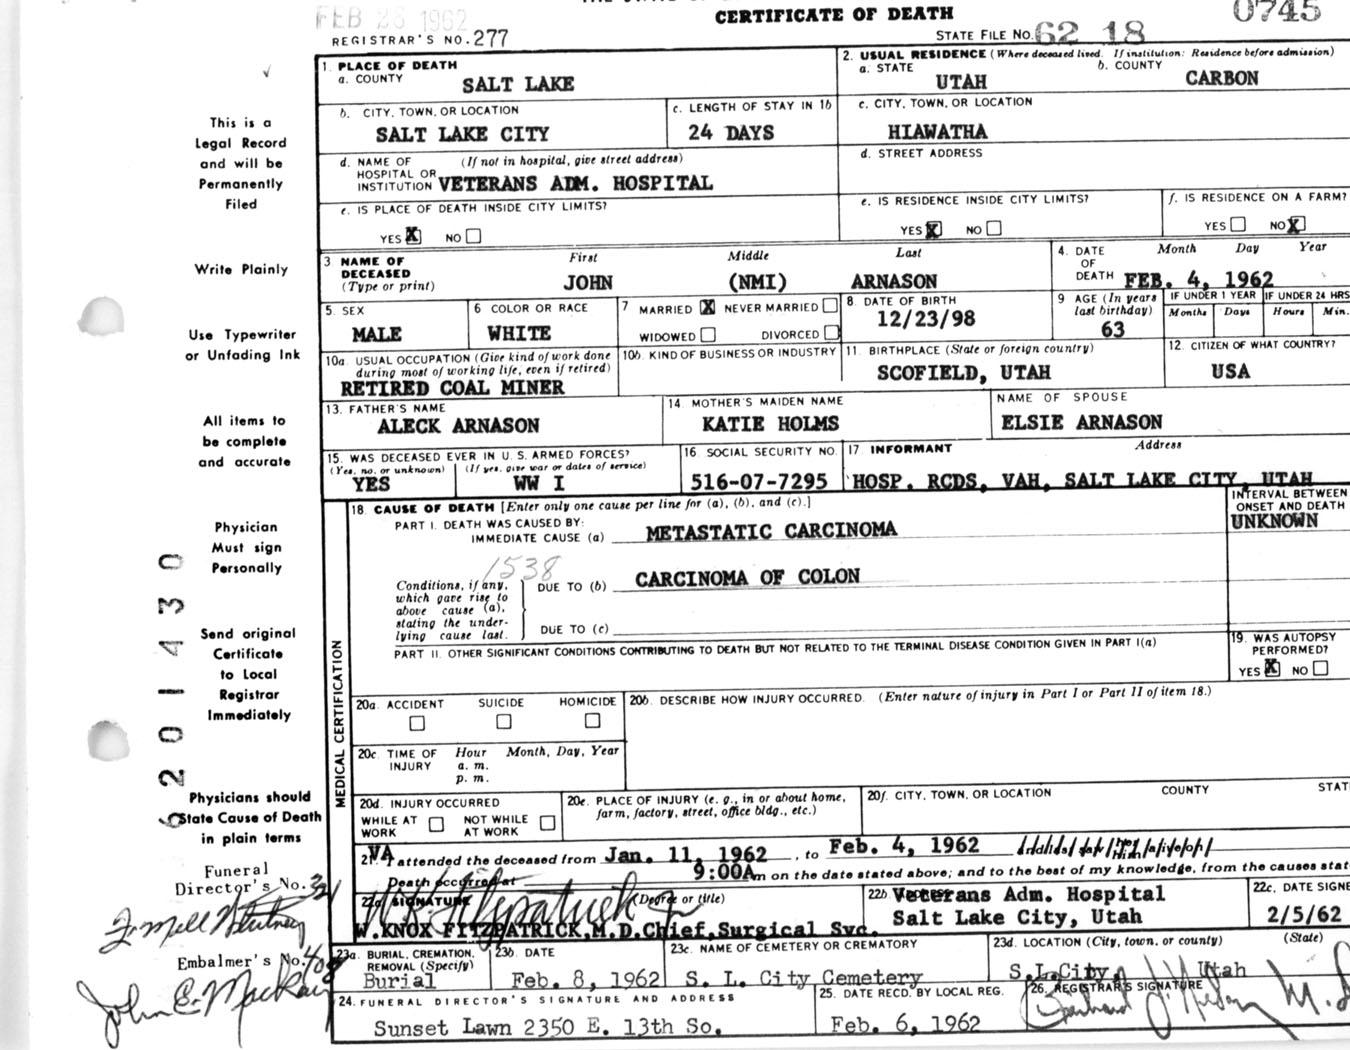 FEB 26 1962
CERTIFICATE OF DEATH
0745
REGISTRAR'S NO. 277
STATE FILE NO. 62 18
This is a
Legal Record
and will be
Permanently
Filed
Write Plainly
Use Typewriter
or Unfading Ink
All items to
be complete
and accurate
Physician
Must sign
Personally
Send original
Certificate
to Local
Registrar
Immediately
Physicians should
State Cause of Death
in plain terms
201430
Funeral
Director's No.
Embalmer's No.
1. PLACE OF DEATH
a. COUNTY SALT LAKE
2. USUAL RESIDENCE (Where deceased lived. If institution: Residence before admission)
a. STATE UTAH b. COUNTY CARBON
b. CITY, TOWN, OR LOCATION SALT LAKE CITY
c. LENGTH OF STAY IN 1b 24 DAYS
c. CITY, TOWN, OR LOCATION HIAWATHA
d. NAME OF (If not in hospital, give street address)
HOSPITAL OR
INSTITUTION VETERANS ADM. HOSPITAL
d. STREET ADDRESS
e. IS PLACE OF DEATH INSIDE CITY LIMITS?
YES X NO
e. IS RESIDENCE INSIDE CITY LIMITS?
YES X NO
f. IS RESIDENCE ON A FARM?
YES NO X
3 NAME OF First Middle Last
DECEASED
(Type or print) JOHN (NMI) ARNASON
4. DATE Month Day Year
OF
DEATH FEB. 4, 1962
5. SEX
MALE
6 COLOR OR RACE
WHITE
7 MARRIED X NEVER MARRIED
WIDOWED DIVORCED
8. DATE OF BIRTH
12/23/98
9 AGE (In years
last birthday)
63
IF UNDER 1 YEAR IF UNDER 24 HRS
Months Days Hours Min.
10a. USUAL OCCUPATION (Give kind of work done
during most of working life, even if retired)
RETIRED COAL MINER
10b. KIND OF BUSINESS OR INDUSTRY
11. BIRTHPLACE (State or foreign country)
SCOFIELD, UTAH
12. CITIZEN OF WHAT COUNTRY?
USA
13. FATHER'S NAME
ALECK ARNASON
14. MOTHER'S MAIDEN NAME
KATIE HOLMS
NAME OF SPOUSE
ELSIE ARNASON
15. WAS DECEASED EVER IN U. S. ARMED FORCES?
(Yes, no, or unknown) (If yes, give war or dates of service)
YES WW I
16 SOCIAL SECURITY NO.
516-07-7295
17 INFORMANT Address
HOSP. RCDS, VAH, SALT LAKE CITY, UTAH
18. CAUSE OF DEATH [Enter only one cause per line for (a), (b), and (c).]
INTERVAL BETWEEN
ONSET AND DEATH
PART I. DEATH WAS CAUSED BY:
IMMEDIATE CAUSE (a) METASTATIC CARCINOMA
UNKNOWN
1538
Conditions, if any,
which gave rise to
above cause (a),
stating the under-
lying cause last.
DUE TO (b) CARCINOMA OF COLON
DUE TO (c)
PART II. OTHER SIGNIFICANT CONDITIONS CONTRIBUTING TO DEATH BUT NOT RELATED TO THE TERMINAL DISEASE CONDITION GIVEN IN PART I(a)
19. WAS AUTOPSY
PERFORMED?
YES X NO
MEDICAL CERTIFICATION
20a. ACCIDENT SUICIDE HOMICIDE
20b. DESCRIBE HOW INJURY OCCURRED. (Enter nature of injury in Part I or Part II of item 18.)
20c. TIME OF Hour Month, Day, Year
INJURY a. m.
p. m.
20d. INJURY OCCURRED
WHILE AT NOT WHILE
WORK AT WORK
20e. PLACE OF INJURY (e. g., in or about home,
farm, factory, street, office bldg., etc.)
20f. CITY, TOWN, OR LOCATION COUNTY STAT
21. VA attended the deceased from Jan. 11, 1962, to Feb. 4, 1962
Death occurred at 9:00A m on the date stated above; and to the best of my knowledge, from the causes stat
22a SIGNATURE (Degree or title)
W. KNOX FITZPATRICK, M.D. Chief, Surgical Svc.
22b. Veterans Adm. Hospital
Salt Lake City, Utah
22c. DATE SIGNE
2/5/62
23a. BURIAL, CREMATION,
REMOVAL (Specify)
Burial
23b. DATE
Feb. 8, 1962
23c. NAME OF CEMETERY OR CREMATORY
S. L. City Cemetery
23d. LOCATION (City, town, or county) (State)
S.L.City, Utah
24. FUNERAL DIRECTOR'S SIGNATURE AND ADDRESS
Sunset Lawn 2350 E. 13th So.
25. DATE RECD. BY LOCAL REG.
Feb. 6, 1962
26. REGISTRAR'S SIGNATURE